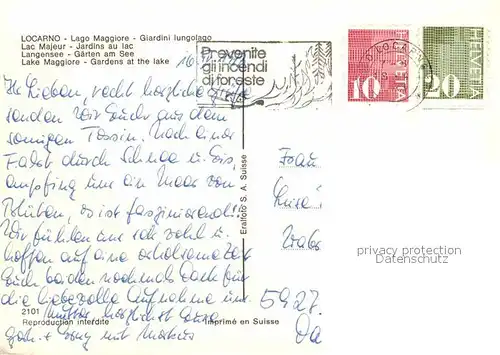 LOCARNO - Lago Maggiore - Giardini lungolago
Lac Majeur - Jardins au lac
Langensee - Gärten am See
Lake Maggiore - Gardens at the lake
Prevenite
gli incendi
di foreste
LOCARNO
HELVETIA
10
HELVETIA
20
Ihr Lieben, recht herzliche
senden wir Euch aus dem
sonnigen Tessin. Nach einer
Fahrt durch Schnee u. Eis,
empfing uns ein Meer von
Blüten, es ist faszinierend!!
Wir fühlen uns sehr wohl u.
hoffen auf eine erholsame Zeit
Euch beiden nochmals Dank für
die liebevolle Aufnahme und
herzlichst Eure
mit Markus
Frau
5927
Eralfoto S. A. Suisse
privacy protection
Datenschutz
2101
Reproduction interdite
Imprimé en Suisse